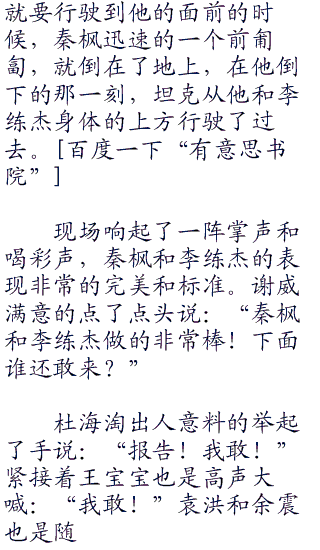 就要行驶到他的面前的时
候，秦枫迅速的一个前匍
匐，就倒在了地上，在他倒
下的那一刻，坦克从他和李
练杰身体的上方行驶了过
去。[百度一下“有意思书
院”]
现场响起了一阵掌声和
喝彩声，秦枫和李练杰的表
现非常的完美和标准。谢威
满意的点了点头说：“秦枫
和李练杰做的非常棒！下面
谁还敢来？”
杜海淘出人意料的举起
了手说：“报告！我敢！”
紧接着王宝宝也是高声大
喊：“我敢！”袁洪和余震
也是随